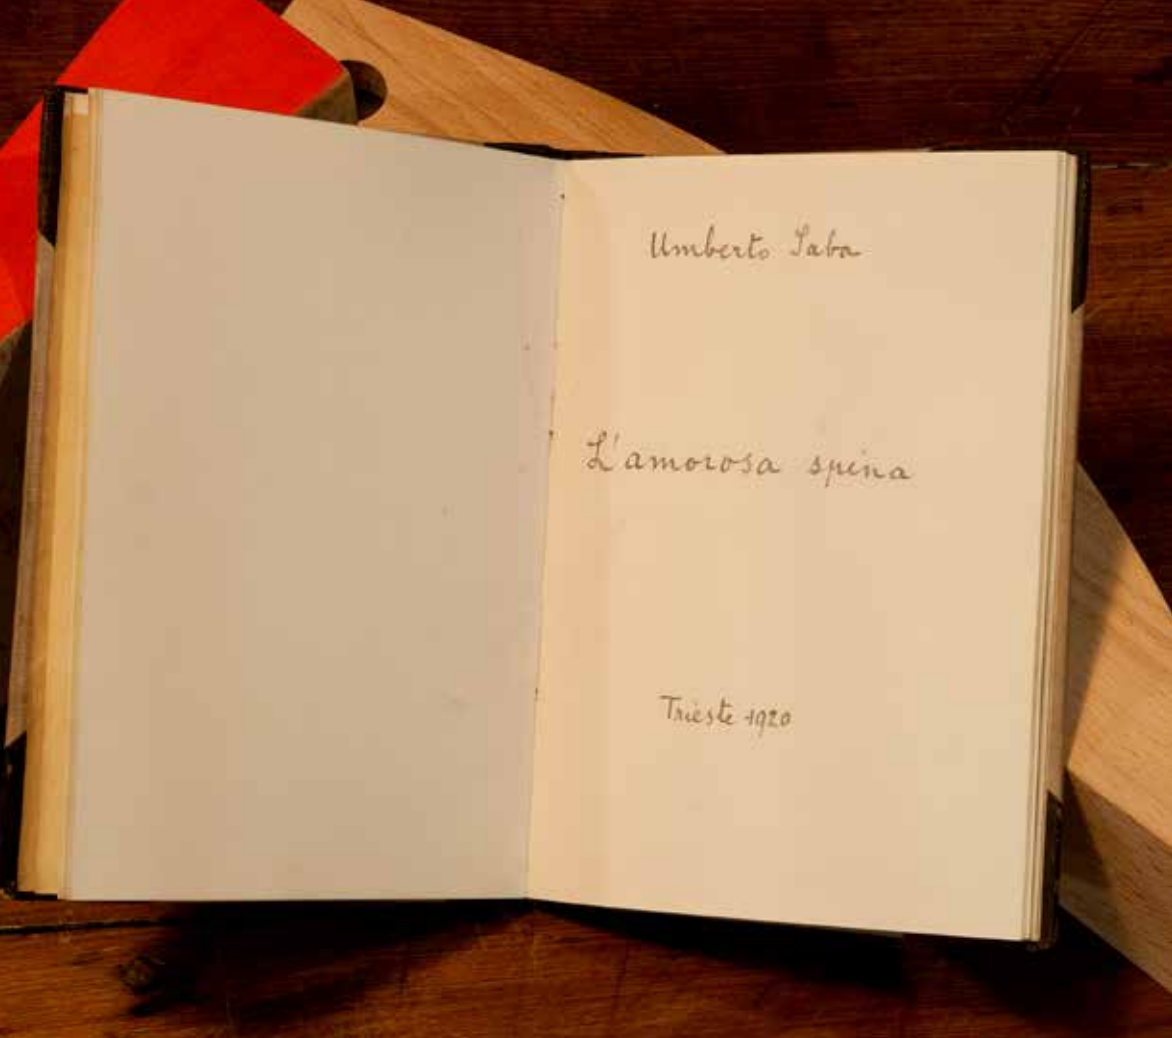 Umberto Saba
L'amorosa spina
Trieste 1920